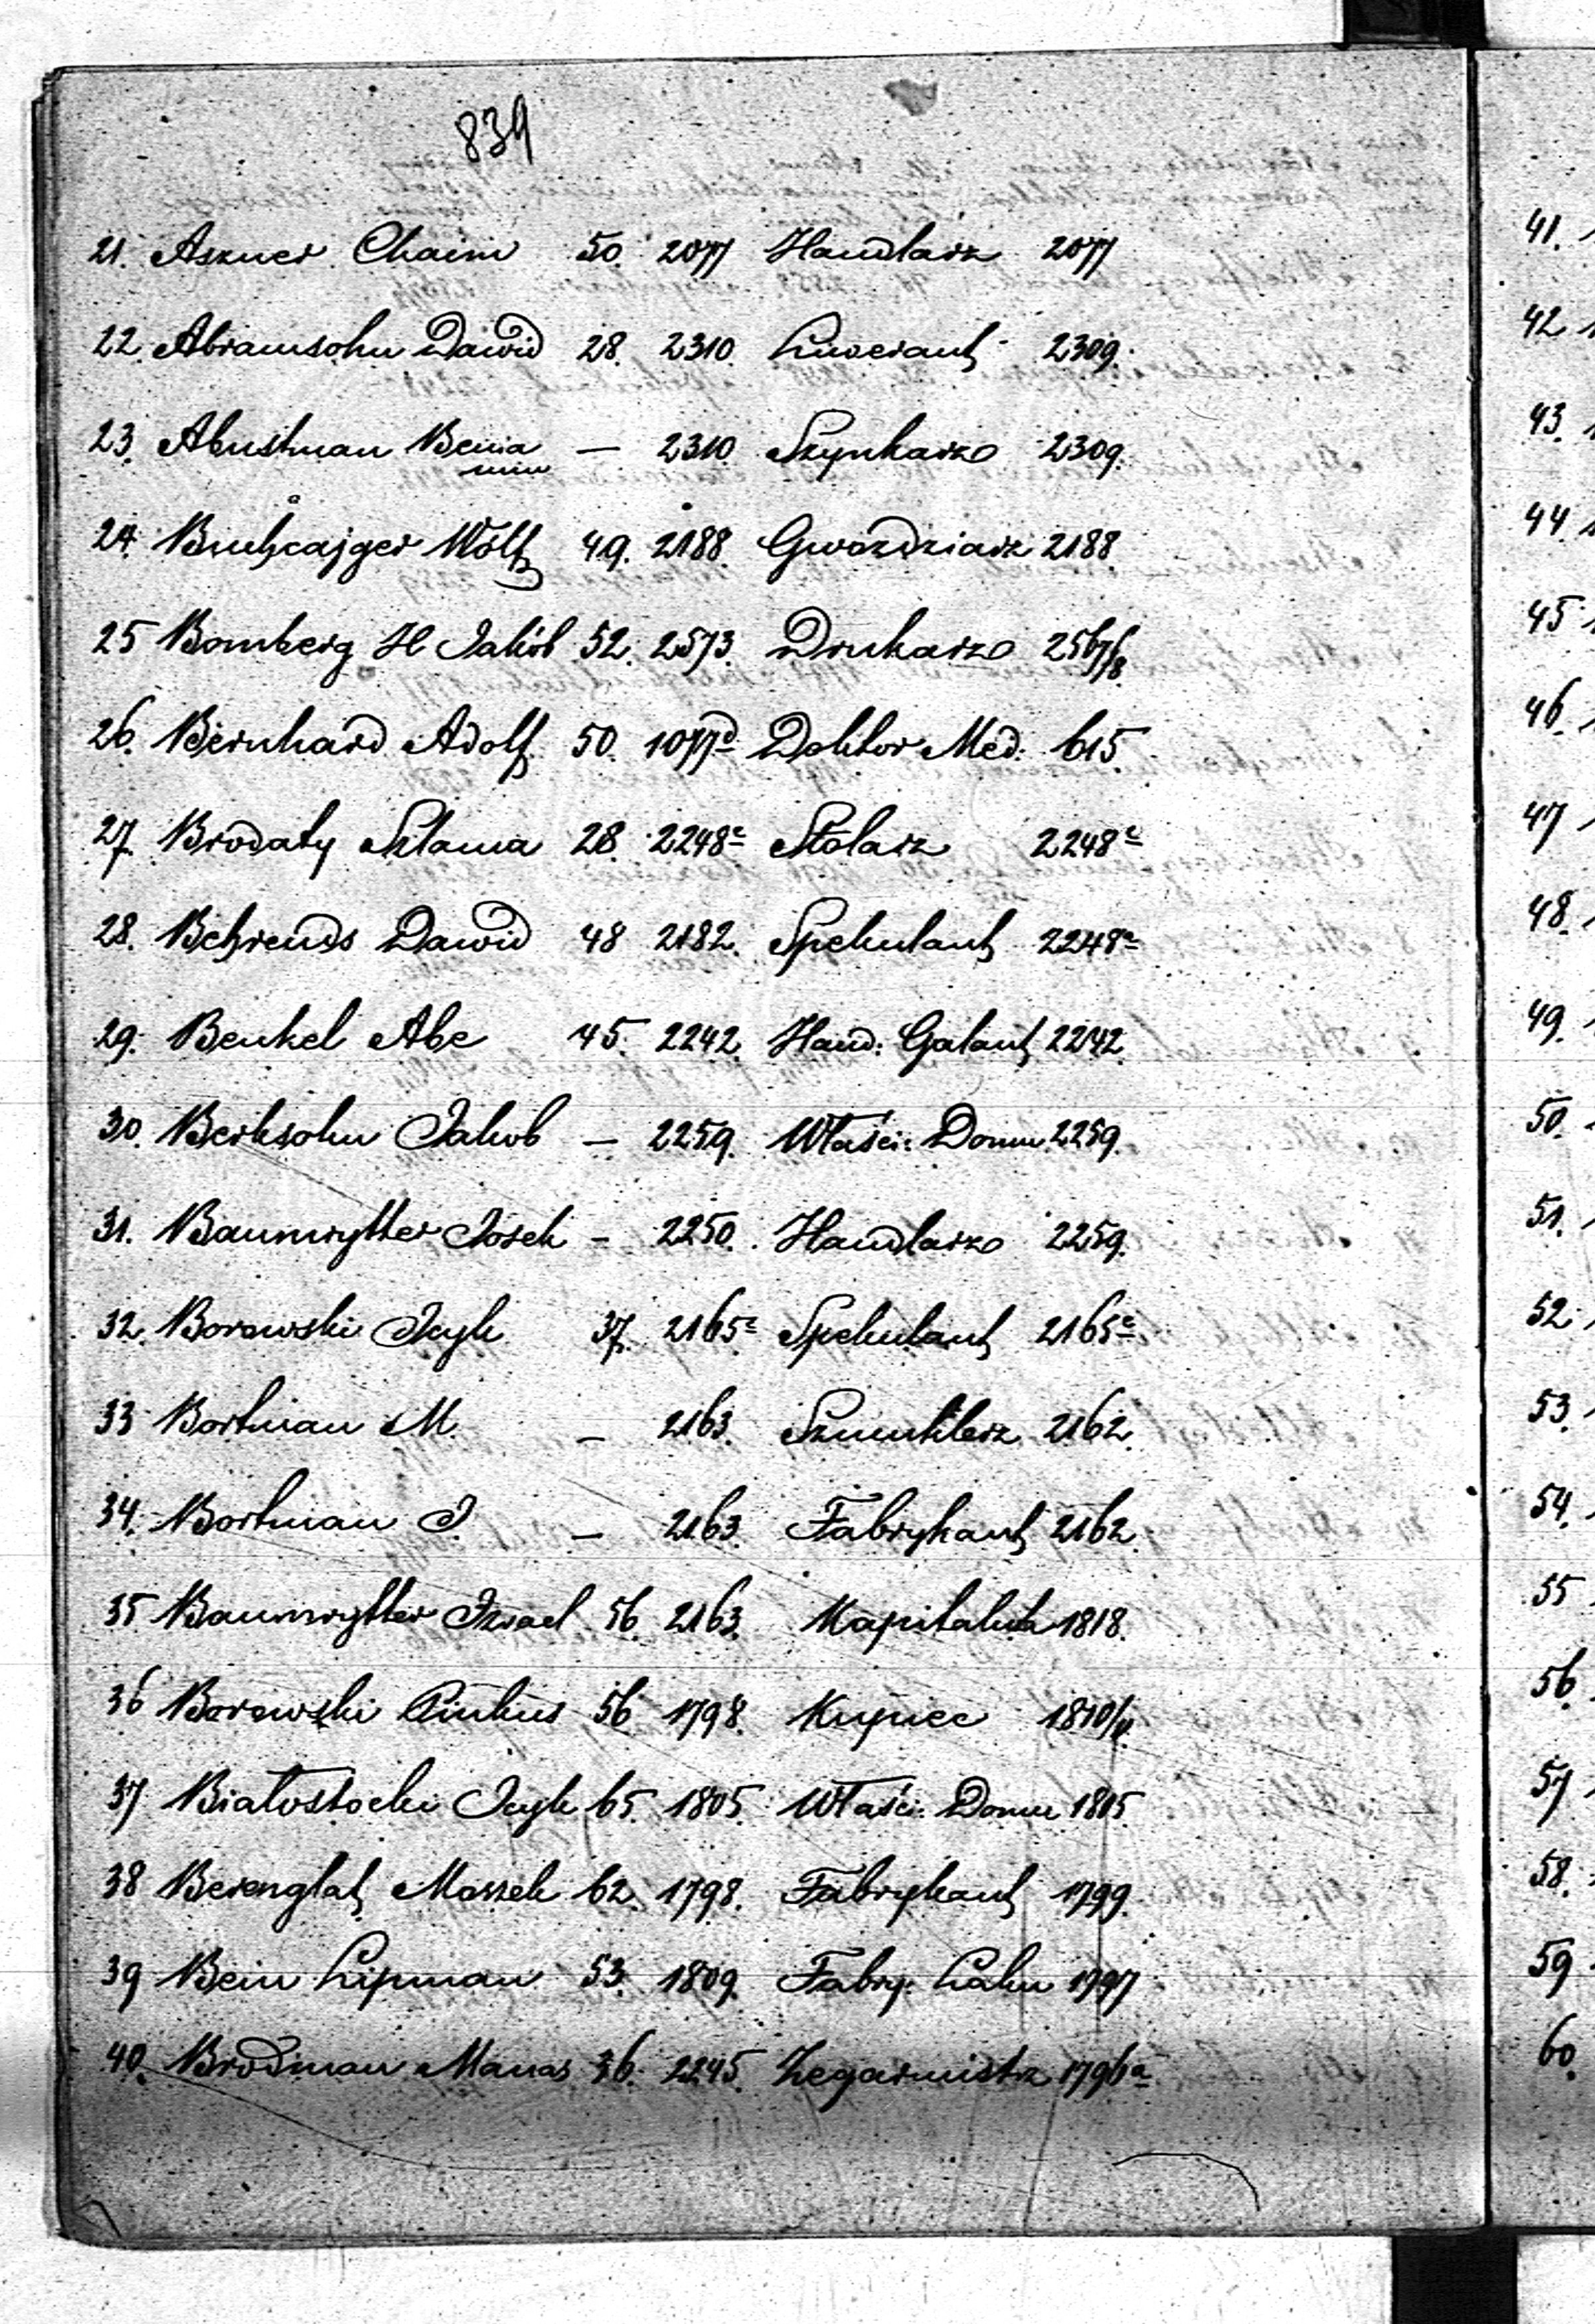 839
21. Askner Chaim 50. 2077 Handlarz 2077
22. Abramsohn Dawid 28. 2310. Liwerant 2309.
23. Abustman Benia — 2310. Szynkarz 2309.
min
24. 49. 2188. Gwoździarz 2188.
25 Bomberg H Jakób 52. 2573. Drukarz 2567/8.
26. Bernhard Adolf. 50. 1077d Doktor Med: 615.
27. Brodaty Szlama 28. 2248c Stolarz 2248c
28. Behrends Dawid 48 2182. Spekulant 2248c
29. Benkel Abe 45. 2242. Hand: Galant 2242.
30. Berksohn Jakob — 2259. Właści: Domu 2259.
31. Baumrytter Josek – 2250. Handlarz 2259.
32. Borowski Icyk 37. 2165c Spekulant 2165c
33 Bortman M. – 2163. Szmuklerz 2162.
34. Bortman I. – 2163. Fabrykant 2162.
35 Baumrytter Izrael 56. 2163. Kapitalista 1818.
36 Borowski Pinkus 56 1798. Kupiec
37 Białostocki Icyk 65. 1805. Właści: Domu 1805.
38 Berenglat Moszek 62. 1798. Fabrykant 1799.
39 Bein Lipman 53. 1809. Fabry: Laku 1797
40. Brodman Manas 36. 2245. Zegarmistrz 1796a
41.
42
43.
44
45
46.
47
48.
49.
50.
51.
52
53.
54.
55
56.
57
58.
59
60.